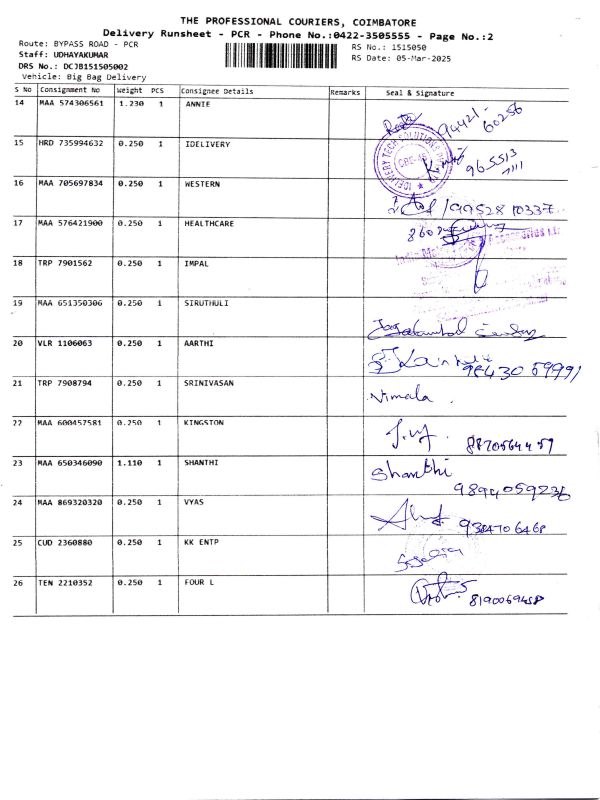 THE PROFESSIONAL COURIERS, COIMBATORE
Delivery Runsheet - PCR - Phone No.:0422-3505555 - Page No.:2
Route: BYPASS ROAD - PCR
RS No.: 1515050
Staff: UDHAYAKUMAR
RS Date: 05-Mar-2025
DRS No.: DCJB151505002
Vehicle: Big Bag Delivery
S No Consignment No Weight PCS Consignee Details Remarks Seal & Signature
14 MAA 574306561 1.230 1 ANNIE 94421-60256
15 HRD 735994632 0.250 1 IDELIVERY 965513
16 MAA 705697834 0.250 1 WESTERN 99528 10337
17 MAA 576421900 0.250 1 HEALTHCARE
18 TRP 7901562 0.250 1 IMPAL
19 MAA 651350306 0.250 1 SIRUTHULI
20 VLR 1106063 0.250 1 AARTHI
21 TRP 7908794 0.250 1 SRINIVASAN Vimala
22 MAA 600457581 0.250 1 KINGSTON
23 MAA 650346090 1.110 1 SHANTHI Shanthi 9894059236
24 MAA 869320320 0.250 1 VYAS 9384706468
25 CUD 2360880 0.250 1 KK ENTP
26 TEN 2210352 0.250 1 FOUR L 8190069458